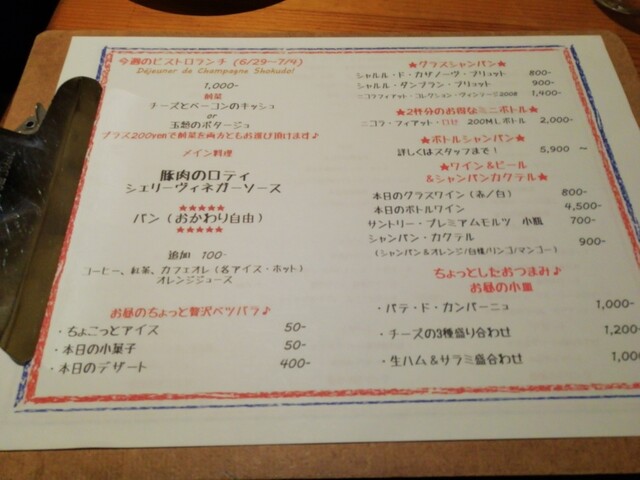 今週のビストロランチ (6/29~7/4)
Déjeuner de Champagne Shokudo!
1,000-
前菜
チーズとベーコンのキッシュ
or
玉葱のポタージュ
プラス200yenで前菜を両方ともお選び頂けます♪
メイン料理
豚肉のロティ
シェリーヴィネガーソース
★★★★★
パン (おかわり自由)
★★★★★
追加 100-
コーヒー、紅茶、カフェオレ (各アイス・ホット)
オレンジジュース
お昼のちょっと贅沢ベツバラ♪
・ちょこっとアイス 50-
・本日の小菓子 50-
・本日のデザート 400-
★グラスシャンパン★
シャルル・ド・カザノーヴ・ブリュット 800-
シャルル・ダンブラン・ブリュット 900-
ニコラフィアット・コレクション・ヴィンテージ2008 1,400-
★2杯分のお得なミニボトル★
ニコラ・フィアット・ 200MLボトル 2,000-
★ボトルシャンパン★
詳しくはスタッフまで! 5,900 ~
★ワイン&ビール
&シャンパンカクテル★
本日のグラスワイン (赤/白) 800-
本日のボトルワイン 4,500-
サントリー・プレミアムモルツ 小瓶 700-
シャンパン・カクテル 900-
(シャンパン&オレンジ/白桃/リンゴ/マンゴー)
ちょっとしたおつまみ♪
お昼の小皿
・パテ・ド・カンパーニュ 1,000-
・チーズの3種盛り合わせ 1,200-
・生ハム&サラミ盛合わせ 1,000